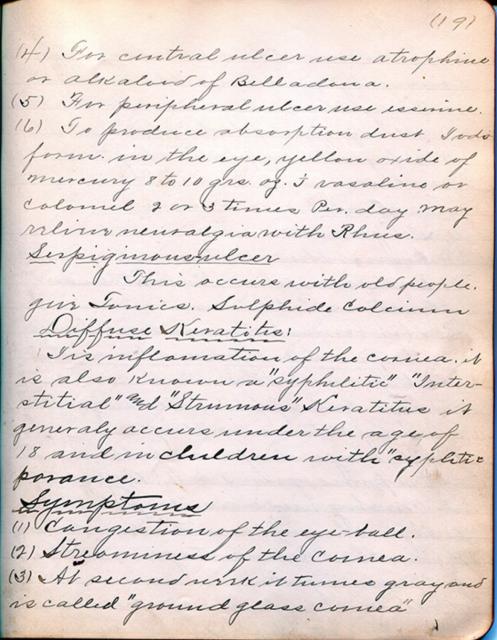 (19)
(4) For central ulcer use atrophine
or alkaloid of Belladona.
(5) For peripheral ulcer use esserine.
(6) To produce absorption dust Iodo
form in the eye, yellow oxide of
mercury 8 to 10 grs. oz. i vasaline or
colomel 2 or 3 times Per. day may
relieve neuralgia with Rhus.
Serpiginous ulcer
This occurs with old people.
give Tonics. Sulphide Calcium
Diffuse Keratits:
Tis inflamation of the cornea. it
is also known a "syphilitic" "Inter-
stitial" and "Strumous" Keratitus it
generaly occurs under the age of
18 and in children with "syphlitic
pearance.
Symptoms
(1) Congestion of the eye-ball.
(2) Streaminess of the cornea.
(3) At second week it turnes gray and
is called "ground glass cornea"